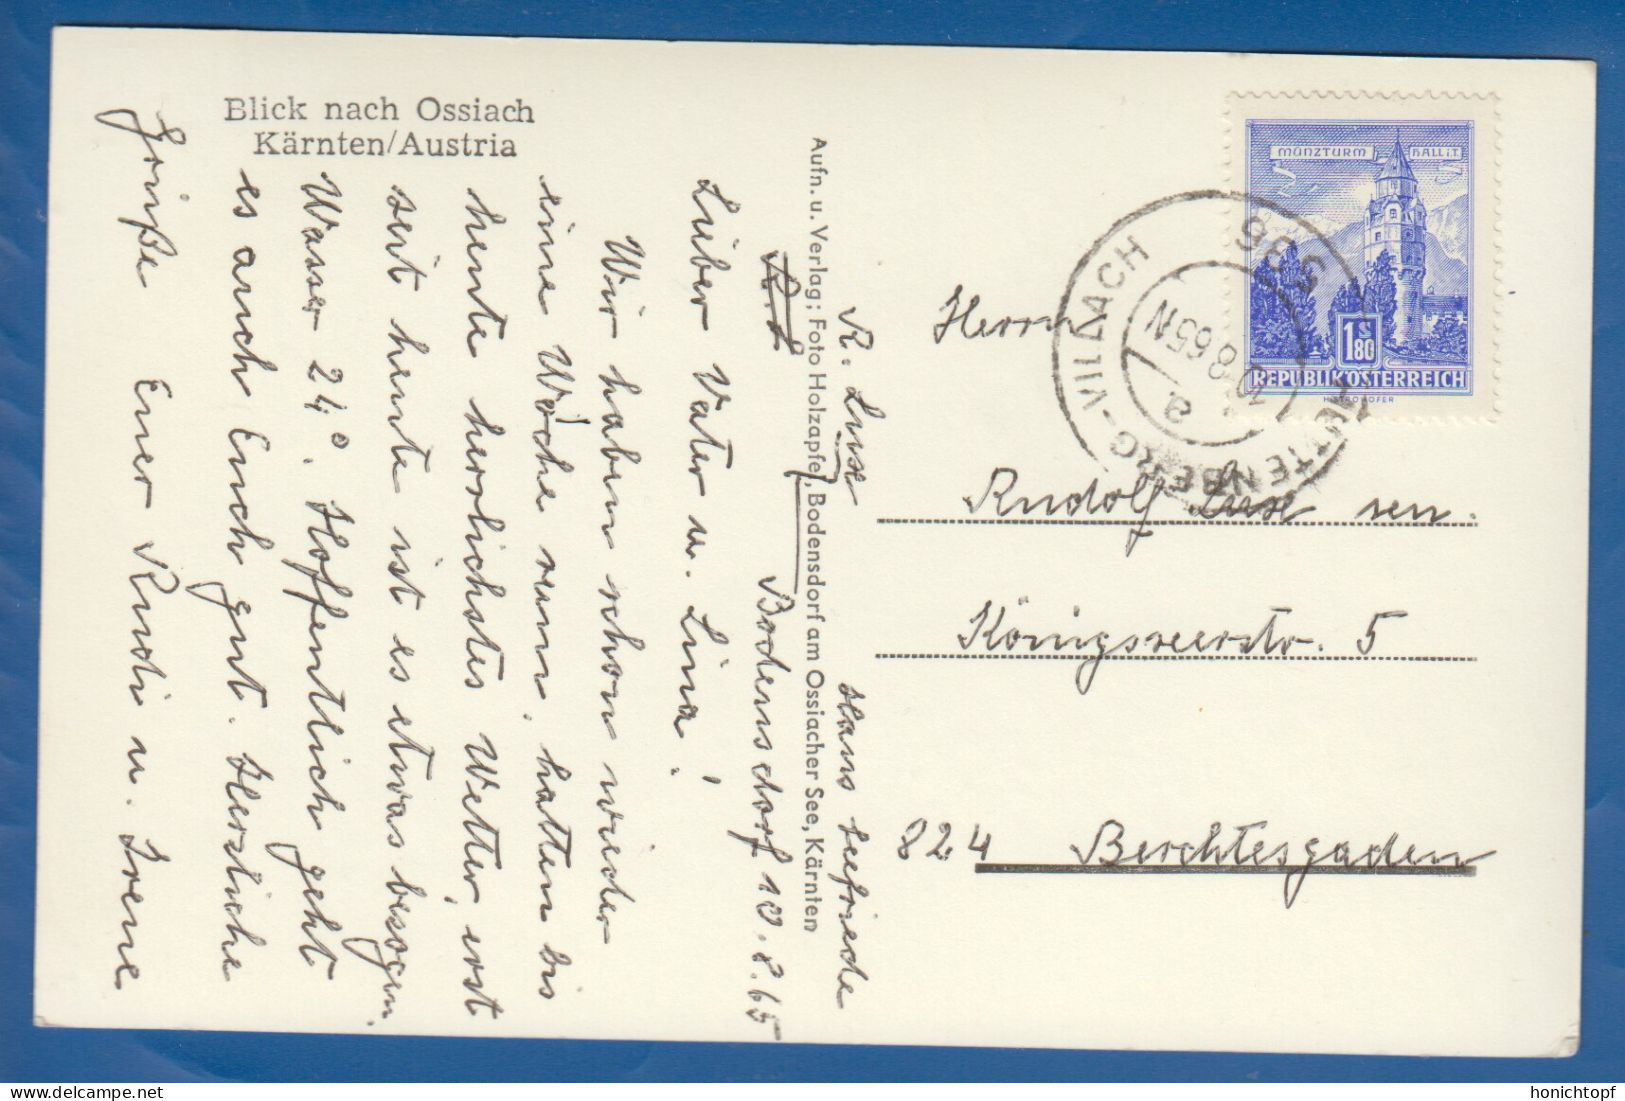 Blick nach Ossiach
Kärnten/Austria
R. Luxe Haus Seefriede
Bodensdorf 10.8.65
Lieber Vater u. Lina!
Wir haben schon wieder
eine Woche rum, hatten bis
heute herrlichstes Wetter, erst
seit heute ist es etwas bezogen.
Wasser 24°. Hoffentlich geht
es auch Euch gut. Herzliche
Grüße Euer Rudi u. Irene
Aufn. u. Verlag: Foto Holzapfel, Bodensdorf am Ossiacher See, Kärnten
MÜNZTURM HALL i.T.
1 S 80
REPUBLIK ÖSTERREICH
-VILLACH
10.8.65
Herrn
Rudolf Luxe sen.
Königsseerstr. 5
824 Berchtesgaden
honichtopf